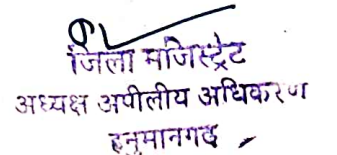 जिला मजिस्ट्रेट
अध्यक्ष अपीलीय अधिकरण
हनुमानगढ